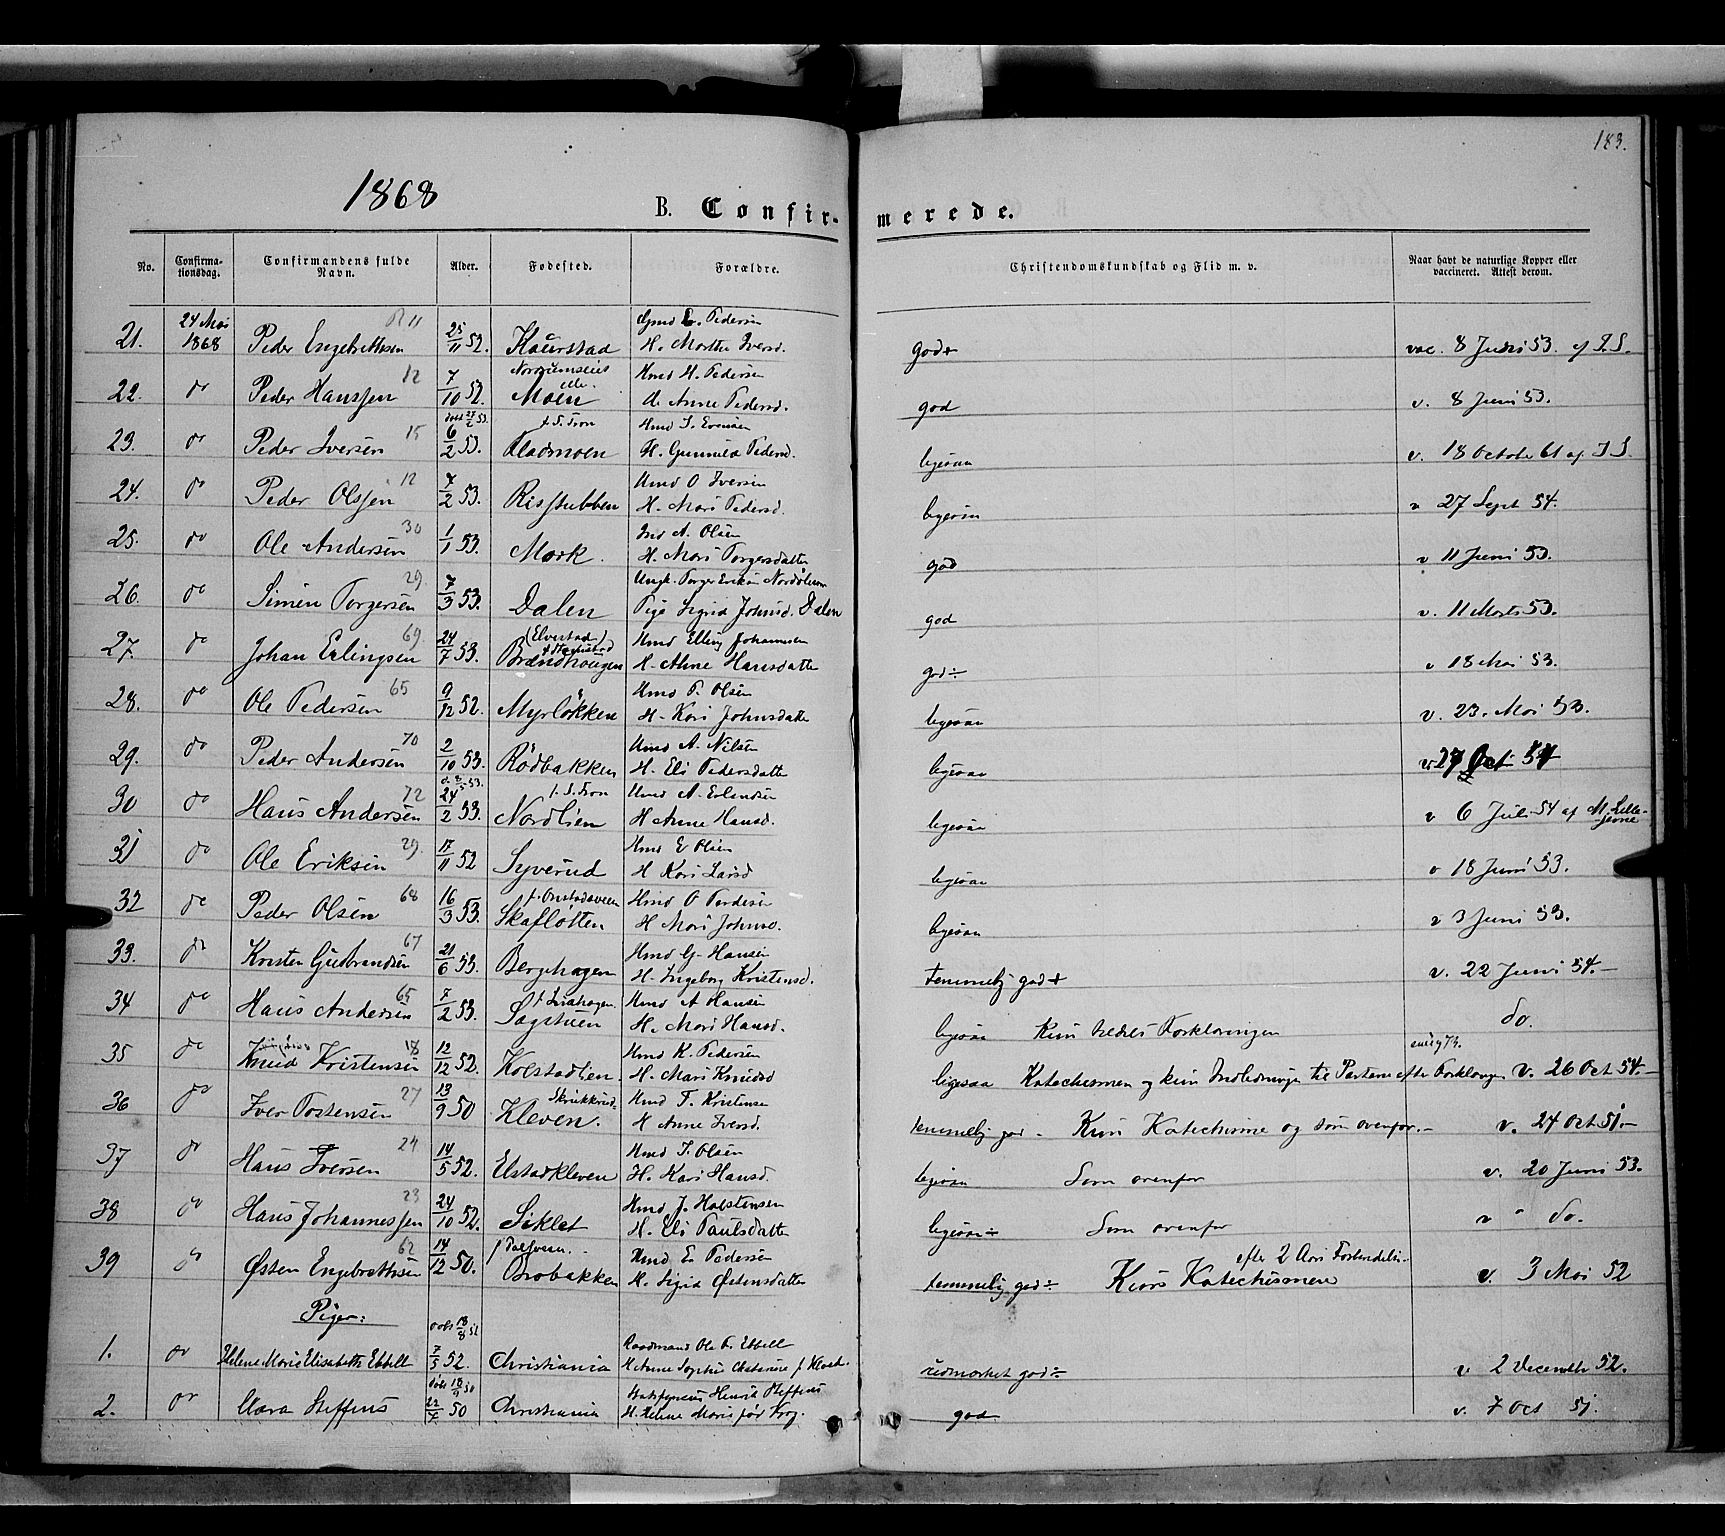 183.
1868
B. Confirmerede.
No. Confirmationsdag. Confirmandens fulde Navn. Alder. Fødested. Forældre. Christendomskundskab og Flid m. v. Naar havt de naturlige Kopper eller vaccineret. Attest derom.
24 Mai 11 Gmd E. Pedersen
21. 1868 Peder Engebrethsen 25/11 52. Kaurstad H. Marthe Iversd. god+ vac. 8 Juni 53. af
12 Hmd H. Pedersen
22. do Peder Hanssen 7/10 52. Moen H. Anne Pedersd. god v. 8 Juni 53.
15 S. Fron Hmd I. Evensen
23. do Peder Iversen 6/2 53. Fladmoen H. Gunnild Pedersd. ligesaa v. 18 October 61 af
12 Hmd O Iversen
24. do Peder Olssen 7/2 53. Risstubben H. Mari Pedersd. ligesaa v 27 Sept 54.
30 Ind A. Olsen
25. do Ole Andersen 1/1 53. Mork. H. Mari Torgersdatter god v 11 Juni 53.
29. Ungk. Torger Eriksen
26. do Simen Torgersen 7/3 53. Dalen Pige Sigrid Johnsd. Dalen god v. 11 Marts 53.
69 (Elvestad) Hmd Elling Johannesen
27. do Johan Erlingsen 24/7 53. Brændhaugen H. Anne Hansdatter god÷ v 18 Mai 53.
65 Hmd P. Olsen
28. do Ole Pedersen 9/12 52. Myrløkken H. Kari Johnsdatter ligesaa v. 23. Mai 53.
70 Hmd A. Nilsen
29. do Peder Andersen 2/10 53. Rødbakken H. Eli Pedersdatter ligesaa v 27 Oct 54
72 S. Fron Hmd A. Erlandsen
30 do Hans Andersen 24/2 53. Nordlien H Anne Hansd. ligesaa v 6 Juli 54 af M. Lillejevne
29. Hmd E Olsen
31 do Ole Eriksen 17/11 52 Syverud H Kari Larsd ligesaa v 18 Juni 53.
68 Hmd O Pedersen
32 do Peder Olsen 16/3 53. Skafløtten H Mari Johnsd. ligesaa v 3 Juni 53.
67 Hmd G. Hansen
33. do Kristen Gudbrandsen 21/6 53. Bergehagen H. Ingeborg Kristensd. temmelig god+ v. 22 Juni 54.
65 Hmd A Hansen
34 do Hans Andersen 7/2 53. Sagstuen H. Mari Hansd. ligesaa Kun Forklaringen do.
18 Hmd K. Pedersen
35 do Knud Kristensen 12/12 52. Kolstadlien. H. Mari Knudsd ligesaa Katechismen og kun Indledninger til Parterne efter Forklaringen v. 26 Oct 54.
27 Skrukkrud Hmd T. Kristensen
36 do Iver Tostensen 13/9 50 Kleven. H Anne Iversd. temmelig god Kun Katechisme og som ovenfor. v. 24 Oct 51.
24 Hmd I. Olsen
37 do Hans Iversen 14/5 52. Elstadkleven H. Kari Hansd. ligesaa Som ovenfor v. 20 Juni 53.
23 Hmd J. Halstensen
38 do Hans Johannessen 24/10 52. Siklet H. Eli Paulsdatter ligesaa÷ Som ovenfor v " do.
62 Hmd E Pedersen efter 2 Aars Forberedelse
39 do Østen Engebrethsen 14/12 50. Brobakken H. Sigrid Østensdatter temmelig god÷ Kuns Katechismen v. 3 Mai 52
Piger:
døbt 18/8 52 Raadmand Ole F. Ebbell
1. do Helene Marie Elisabeth Ebbell 7/5 52. Christiania H Anne Sophie Cathrine udmærket god÷ v 2 December 52.
døbt Henrik Steffens
2. do Clara Steffens 22/7 50 Christiania H. Helene Marie født god v. 7 Oct 51.